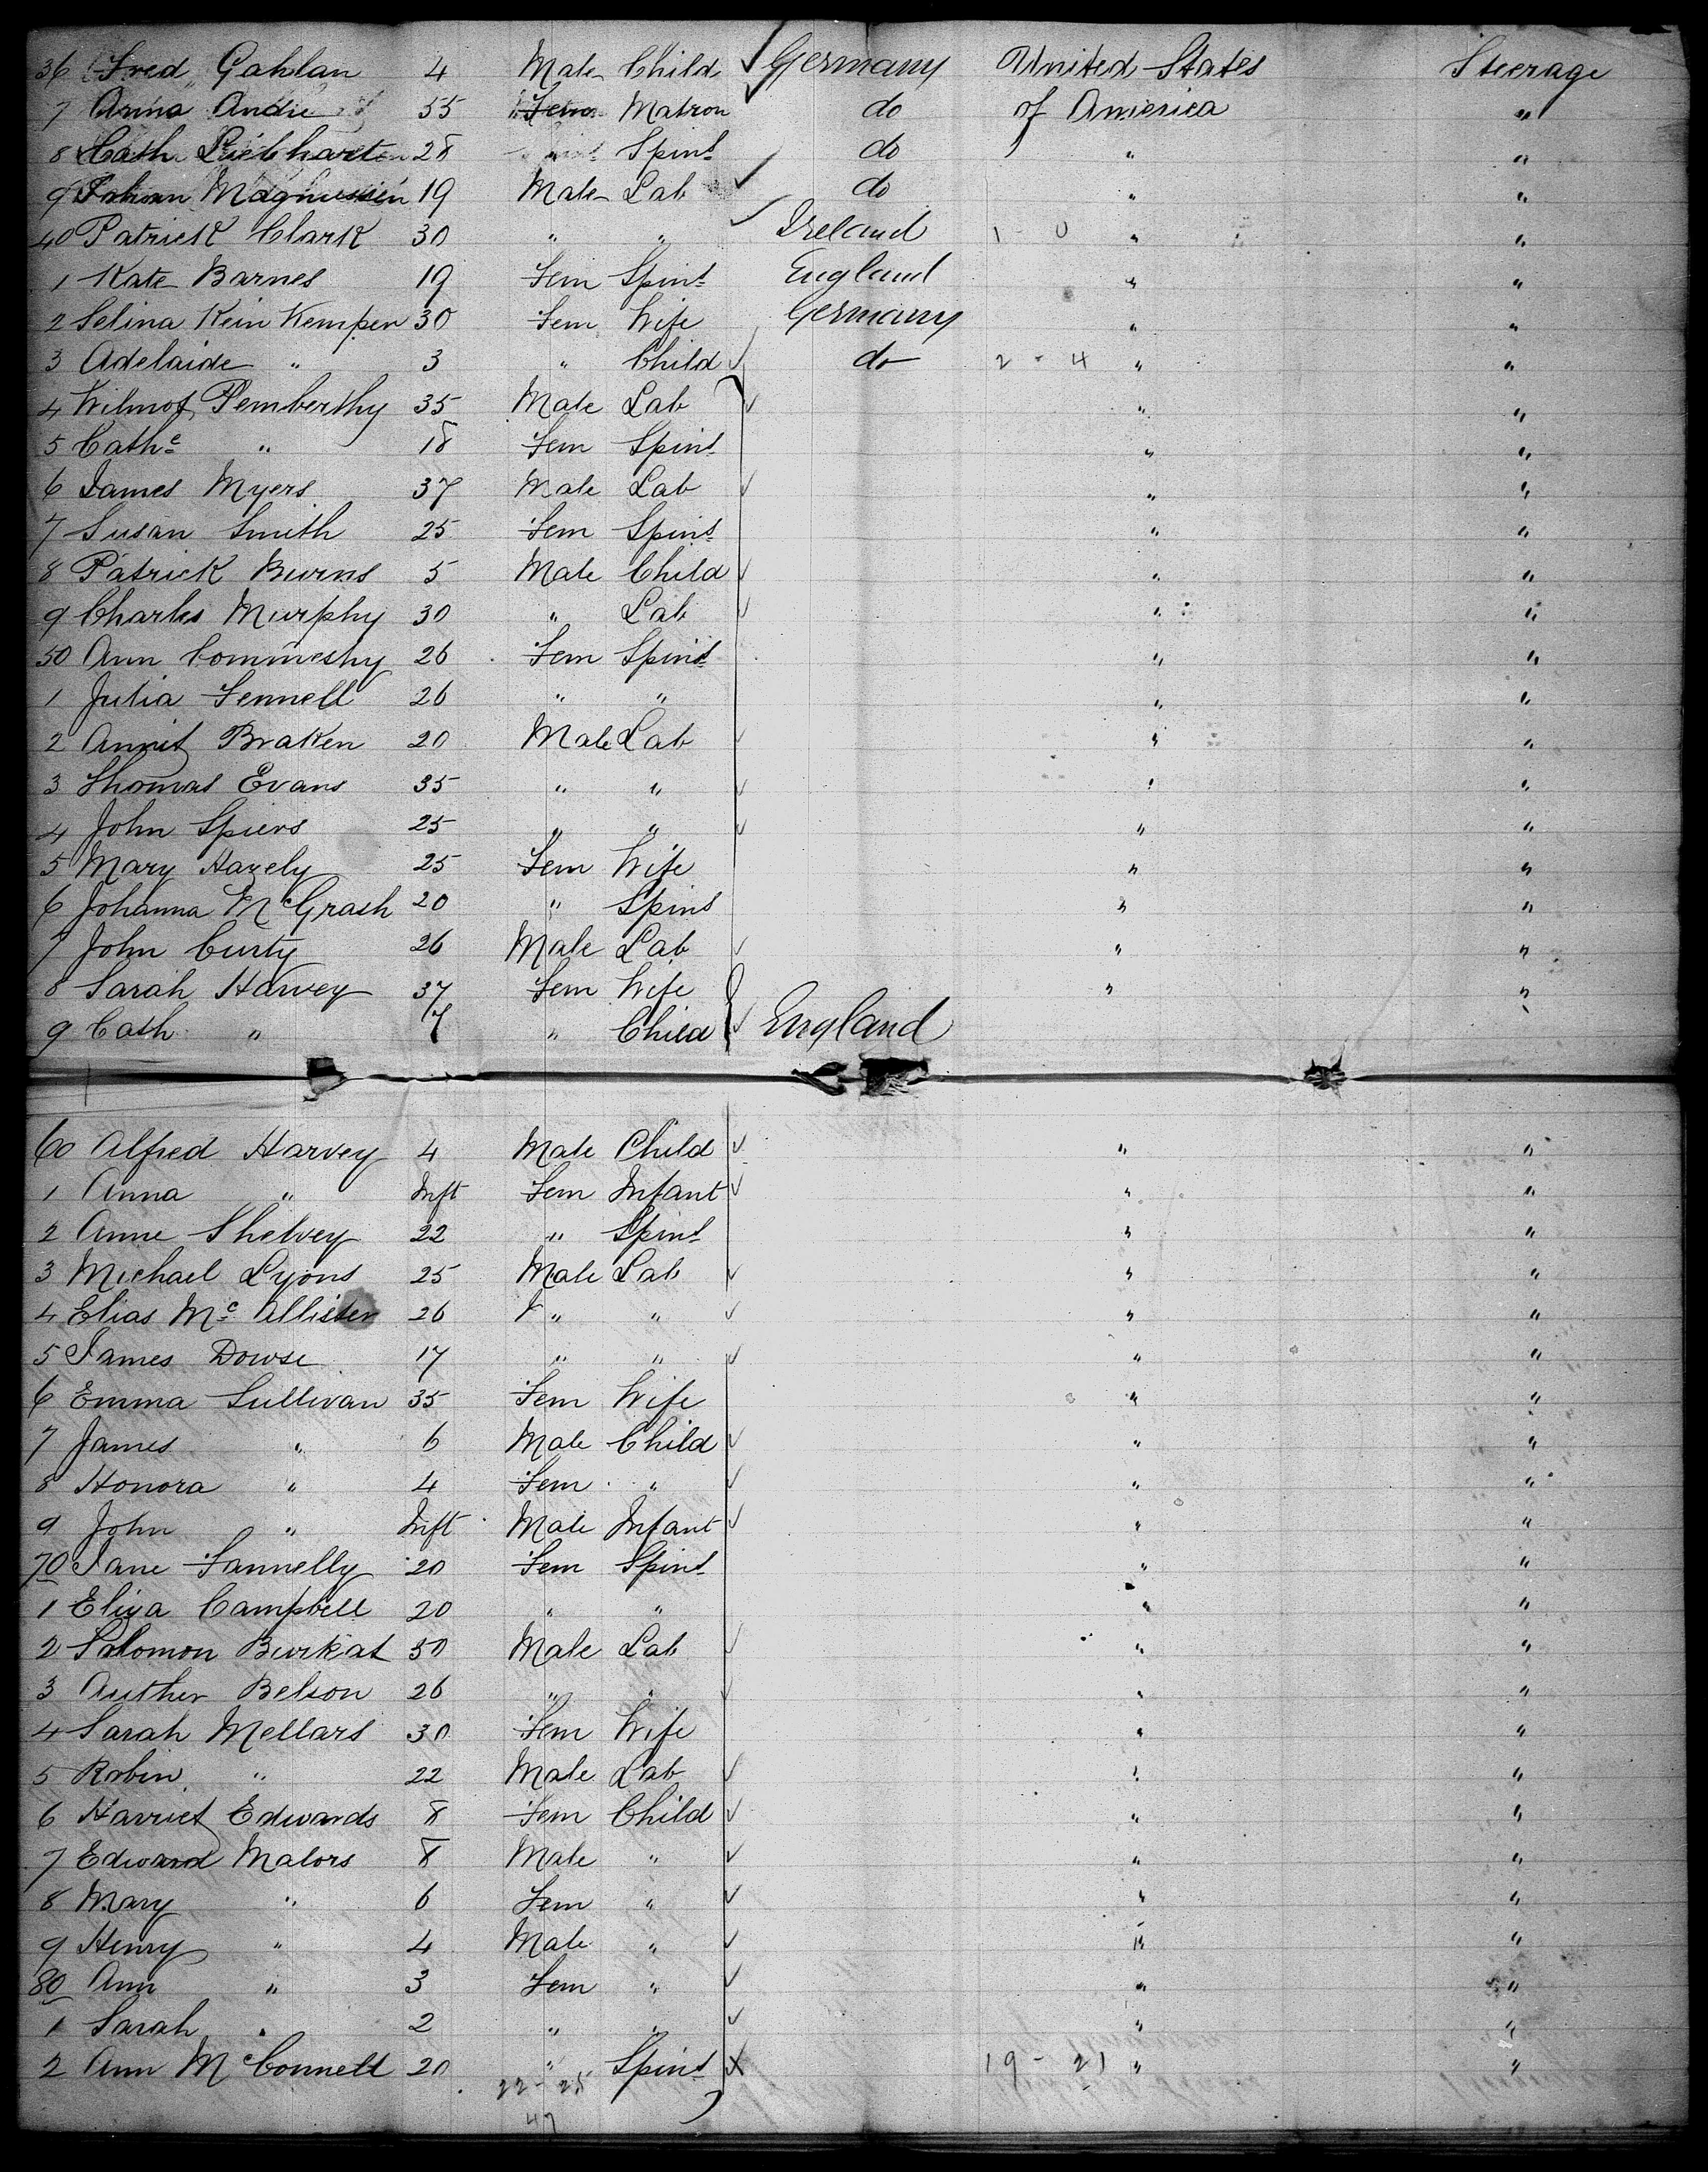 36 Fred Gahlan 4 Male Child Germany United States Steerage
7 Anna Andre 55 Fem Matron do of America "
8 Cath Liebharten 28 " Spinst do " "
9 Magnussen 19 Male Lab do " "
40 Patrick Clark 30 " " Ireland 1 - 0 " "
1 Kate Barnes 19 Fem Spinst England " "
2 Selina Kein Kemper 30 Fem Wife Germany " "
3 Adelaide " 3 " Child do 2 - 4 " "
4 Wilmot Pemberthy 35 Male Lab " "
5 Cathe " 18 Fem Spinst " "
6 James Myers 37 Male Lab " "
7 Susan Smith 25 Fem Spinst " "
8 Patrick Burns 5 Male Child " "
9 Charles Murphy 30 " Lab " "
50 Ann Commeshy 26 Fem Spinst " "
1 Julia Fennell 26 " " " "
2 Braken 20 Male Lab " "
3 Thomas Evans 35 " " " "
4 John Spiers 25 " " " "
5 Mary Havely 25 Fem Wife " "
6 Johanna McGrash 20 " Spins " "
7 John Curty 26 Male Lab " "
8 Sarah Harvey 37 Fem Wife " "
9 Cath " 7 " Child England "
60 Alfred Harvey 4 Male Child " "
1 Anna " Inft Fem Infant " "
2 Anne Shelvey 22 " Spinst " "
3 Michael Lyons 25 Male Lab " "
4 Elias Mc Allister 26 " " " "
5 James Dowse 17 " " " "
6 Emma Sullivan 35 Fem Wife " "
7 James " 6 Male Child " "
8 Honora " 4 Fem " " "
9 John " Inft Male Infant " "
70 Jane Fannelly 20 Fem Spinst " "
1 Eliza Campbell 20 " " " "
2 Salomon Burkat 50 Male Lab " "
3 Auther Belson 26 " " " "
4 Sarah Mellars 30 Fem Wife " "
5 Robin " 22 Male Lab " "
6 Harriet Edwards 8 Fem Child " "
7 Edward Malors 8 Male " " "
8 Mary " 6 Fem " " "
9 Henry " 4 Male " " "
80 Ann " 3 Fem " " "
1 Sarah " 2 " " " "
2 Ann McConnell 20 " Spinst 19 - 21 " "
22 - 25
47